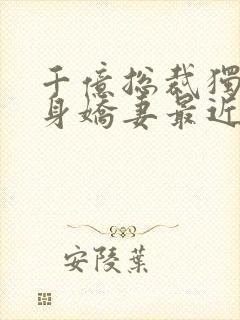 千億總裁獨
身嬌妻最近
安陵葉